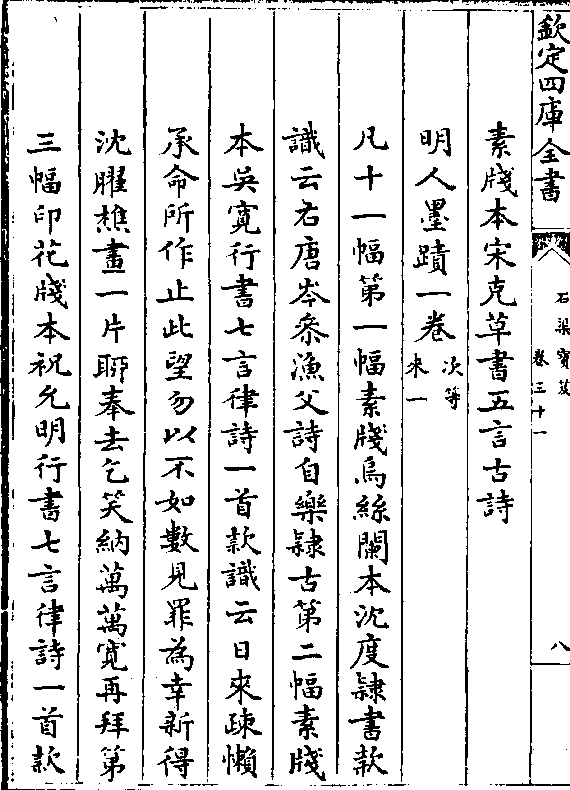 欽定四庫全書
石渠寳笈
卷三十一
八
素牋本宋克草書五言古詩
明人墨蹟一卷
次等
來一
凡十一幅第一幅素牋烏絲闌本沈度隷書款
識云右唐岑叅漁父詩自樂隷古第二幅素牋
本吳寛行書七言律詩一首款識云日來疎懶
承命所作止此望勿以不如數見罪為幸新得
沈臞樵畫一片聊奉去乞笑納萬萬寛再拜第
三幅印花牋本祝允明行書七言律詩一首款